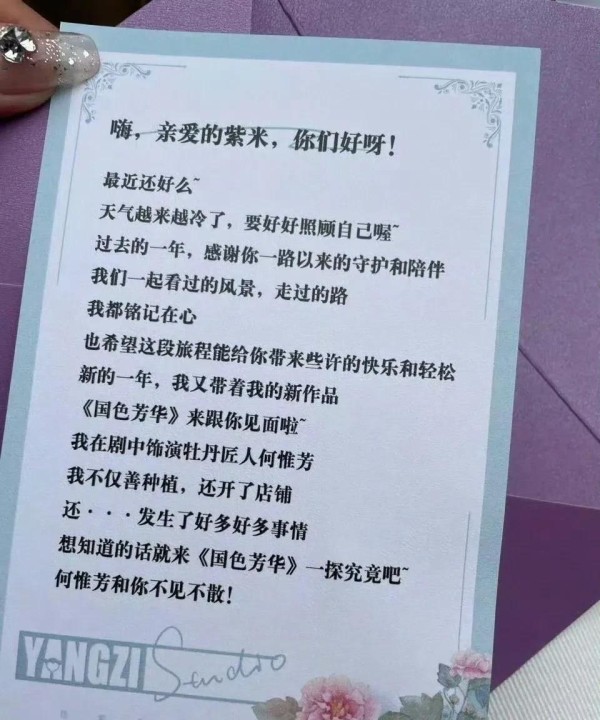 嗨，亲爱的紫米，你们好呀！
最近还好么~
天气越来越冷了，要好好照顾自己喔~
过去的一年，感谢你一路以来的守护和陪伴
我们一起看过的风景，走过的路
我都铭记在心
也希望这段旅程能给你带来些许的快乐和轻松
新的一年，我又带着我的新作品
《国色芳华》来跟你见面啦~
我在剧中饰演牡丹匠人何惟芳
我不仅善种植，还开了店铺
还···发生了好多好多事情
想知道的话就来《国色芳华》一探究竟吧~
何惟芳和你不见不散！
YANGZI Studio